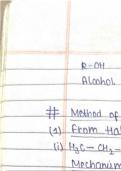 R-OH
Alcohol
# Method of
(1) From Hal
(i) H₃C-CH₂-
Mechanism